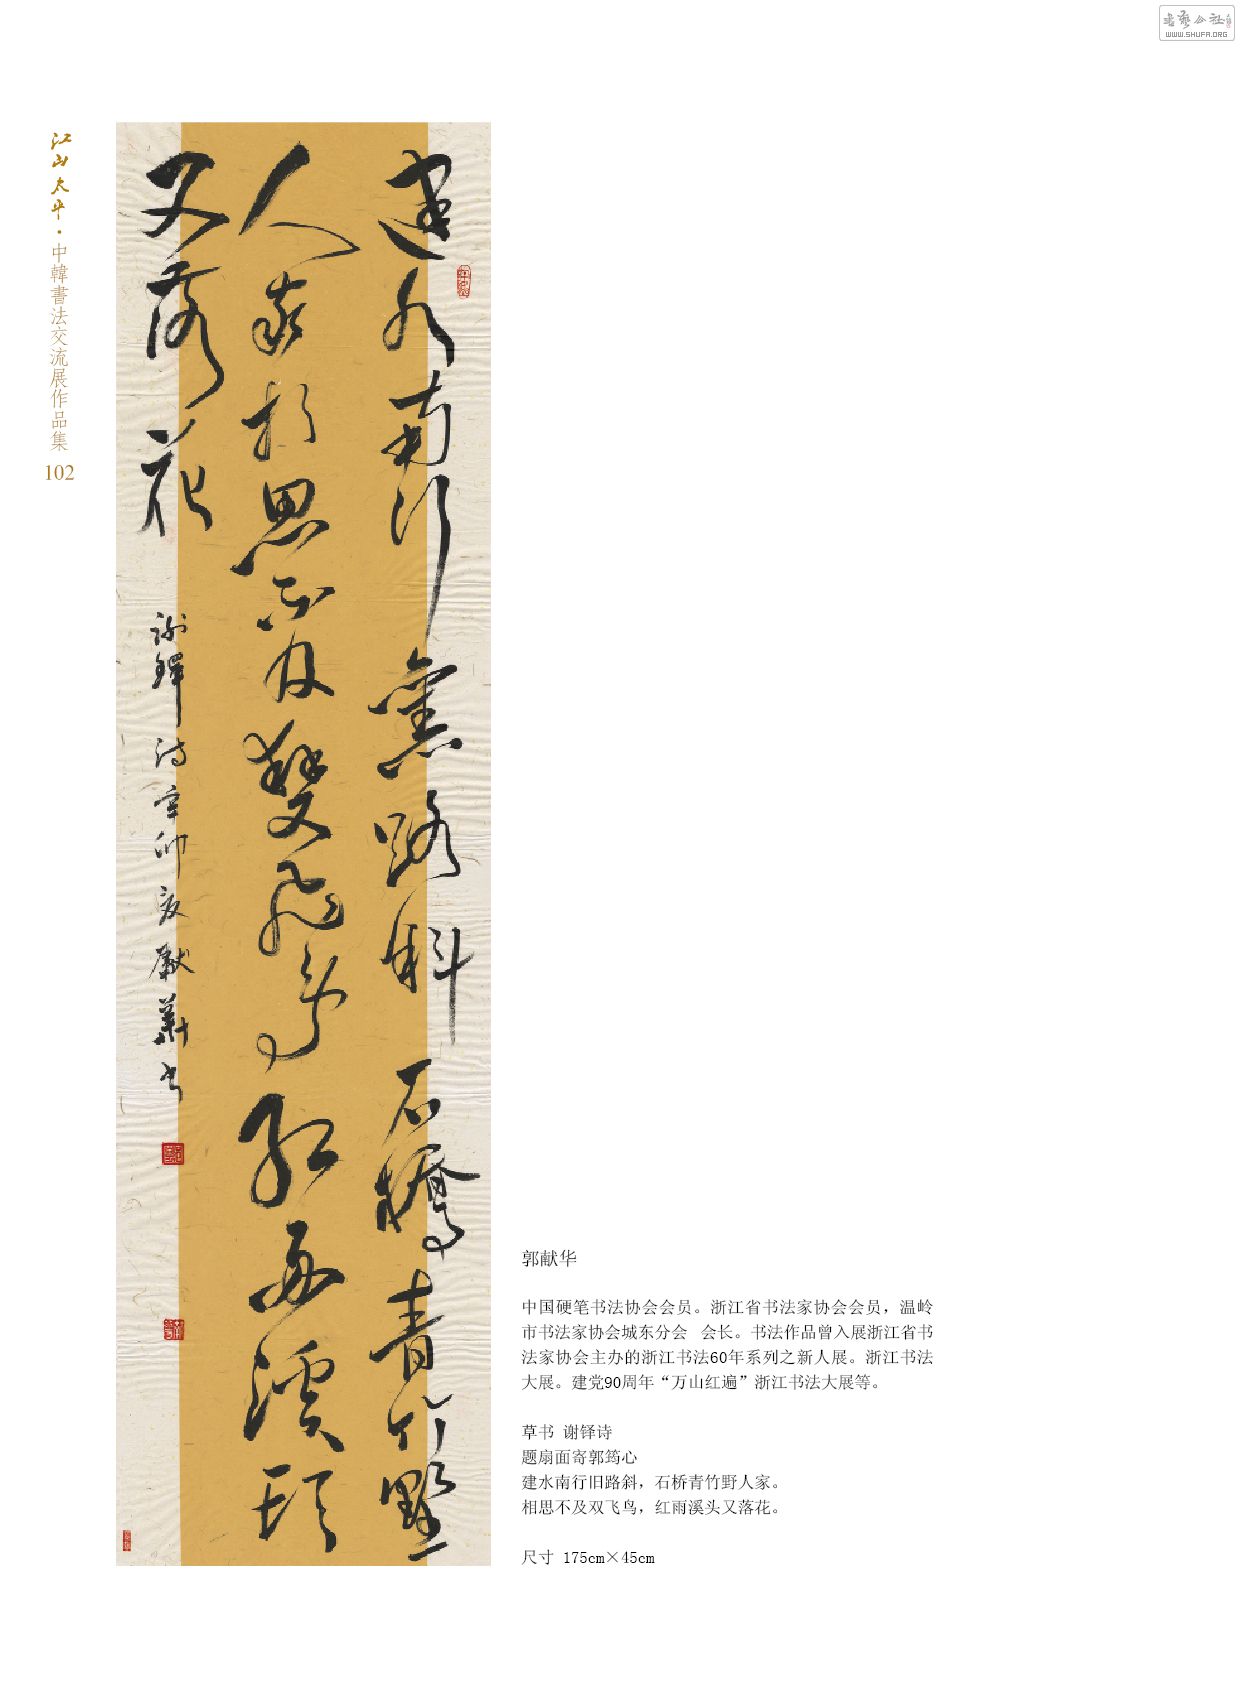 WWW.SHUFA.ORG
江山太平·中韓書法交流展作品集
102
建水南行舊路斜石橋青竹野
人家相思不及雙飛鳥紅雨溪頭
又落花
謝鐸詩
獻華書
郭献华
中国硬笔书法协会会员。浙江省书法家协会会员，温岭
市书法家协会城东分会 会长。书法作品曾入展浙江省书
法家协会主办的浙江书法60年系列之新人展。浙江书法
大展。建党90周年“万山红遍”浙江书法大展等。
草书 谢铎诗
题扇面寄郭筠心
建水南行旧路斜，石桥青竹野人家。
相思不及双飞鸟，红雨溪头又落花。
尺寸 175cm×45cm